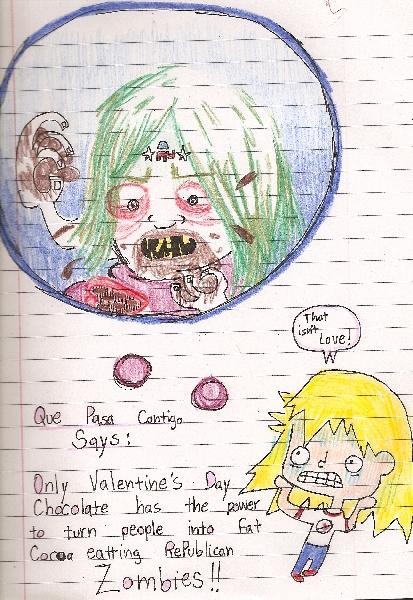 That
isn't
Love!
Que Pasa Contigo
Says:
Only Valentine's Day
Chocolate has the power
to turn people into Fat
Cocoa eatting RePublican
Zombies!!